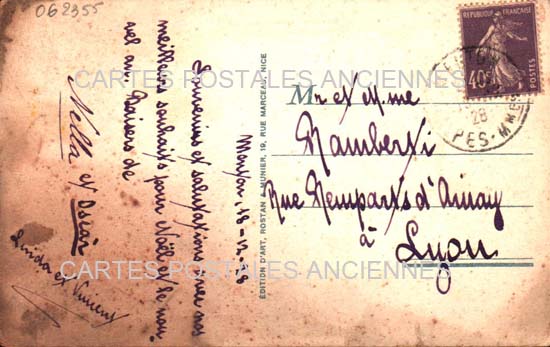 062355
Menton, 18-12-28
Souvenirs et salutations avec nos
meilleurs souhaits pour Noël et le nou-
vel an Baisers de
Nella et Oscar
Linda et Vincent
ÉDITION D'ART, ROSTAN & MUNIER, 19, RUE MARCEAU, NICE
RÉPUBLIQUE FRANÇAISE
40c
POSTES
MENTON
28
Mr et Mme
Ramberti
Rue Remparts d'Ainay
à
Lyon
CARTES POSTALES ANCIENNES
CARTES POSTALES ANCIENNES